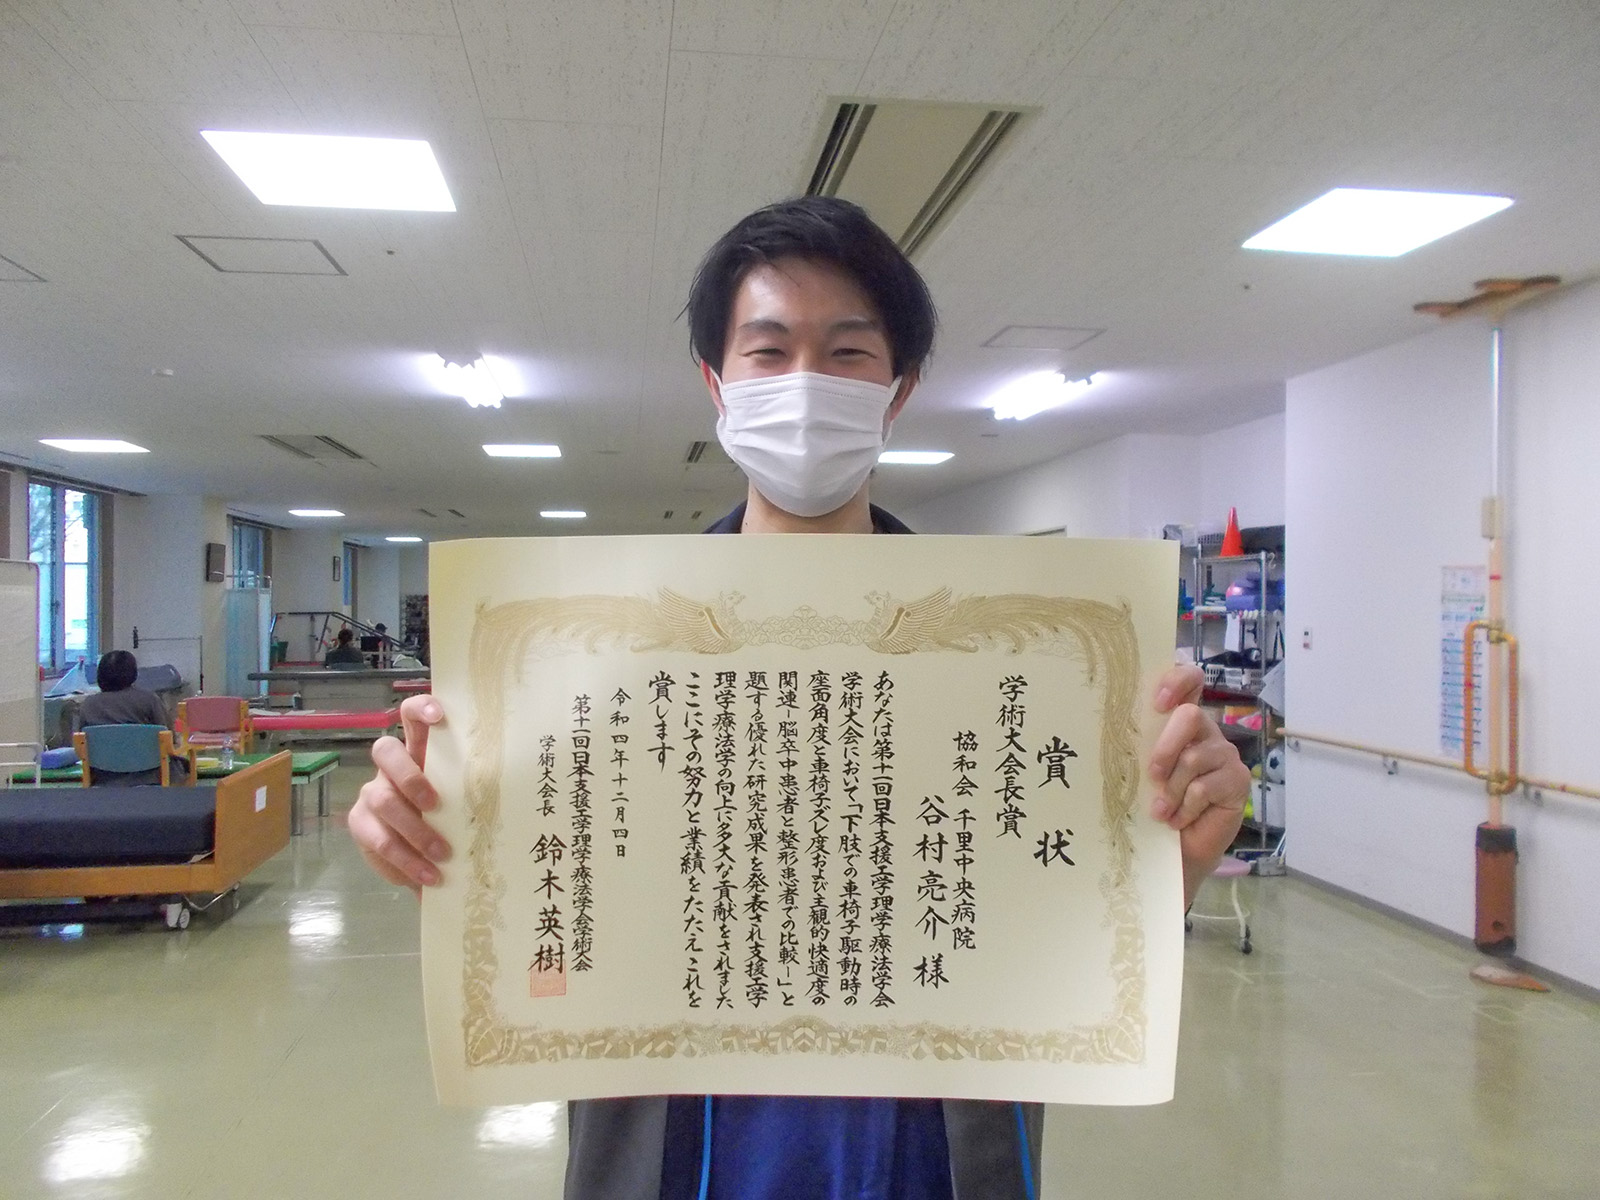 賞状
学術大会長賞
協和会 千里中央病院
谷村亮介 様
あなたは第十一回日本支援工学理学療法学会
学術大会において「下肢での車椅子駆動時の
座面角度と車椅子ズレ度および主観的快適度の
関連-脳卒中患者と整形患者での比較-」と
題する優れた研究成果を発表され支援工学
理学療法学の向上に多大な貢献をされました
ここにその努力と業績をたたえこれを
賞します
令和四年十二月四日
第十一回日本支援工学理学療法学会学術大会
学術大会長 鈴木英樹